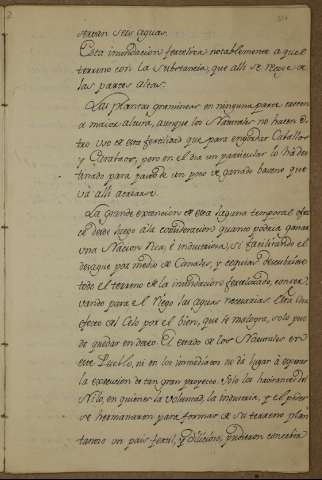 sus aguas.
Esta inundacion fertiliza notablemente aquel
terreno con la substancia, que alli se recoje de
las partes altas.
Las plantas gramineas en ninguna parte crecen
a maior altura, aunque los Naturales no hacen
uso de esta fertilidad que para engordar Caballos
y pero en el dia un particular lo há des
tinado para de un poco de ganado bacuno que
vá alli
La grande extencion de esta laguna temporal ofre
ce desde luego á la consideracion quanto podria ganar
una Nacion rica, é industriosa, si facilitando el
desague por medio de Canales, y cequias descubriese
todo el terreno de la inundacion fertilizado, conser
vando para el riego las aguas necesarias. Esta es un
efecto del Celo por el bien, que se malogra, solo pue
de quedar en deseo. El estado de los Naturales en
este Pueblo, ni en los inmediatos no dá lugar á esperar
la execucion de tan gran proyecto. Solo las havitantes del
Nilo, en quienes la voluntad, la industria, y el poder
se hermanaron para formar de su terreno plan
tanoso un pais fertil, y delicioso, pudieron